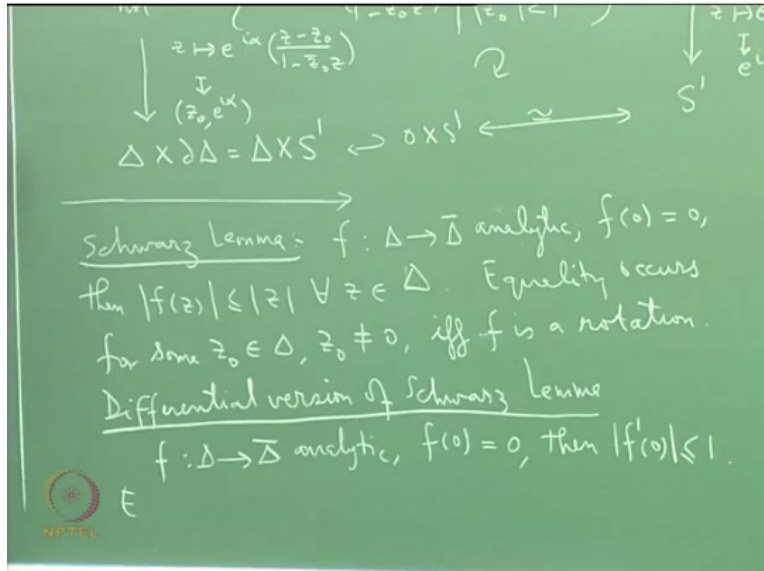 1 - z̄₀z | |z₀| < 1
z ↦
z ↦ e^{iα} (z - z₀ / 1 - z̄₀z)
↧
e^i
(z₀, e^{iα})
S'
Δ × ∂Δ = Δ × S' ↩ 0 × S' ⟷ ≃
Schwarz Lemma:- f : Δ → Δ̄ analytic, f(0) = 0,
then |f(z)| ≤ |z| ∀ z ∈ Δ. Equality occurs
for some z₀ ∈ Δ, z₀ ≠ 0, iff f is a rotation.
Differential version of Schwarz Lemma
f : Δ → Δ̄ analytic, f(0) = 0, then |f'(0)| ≤ 1.
E
NPTEL